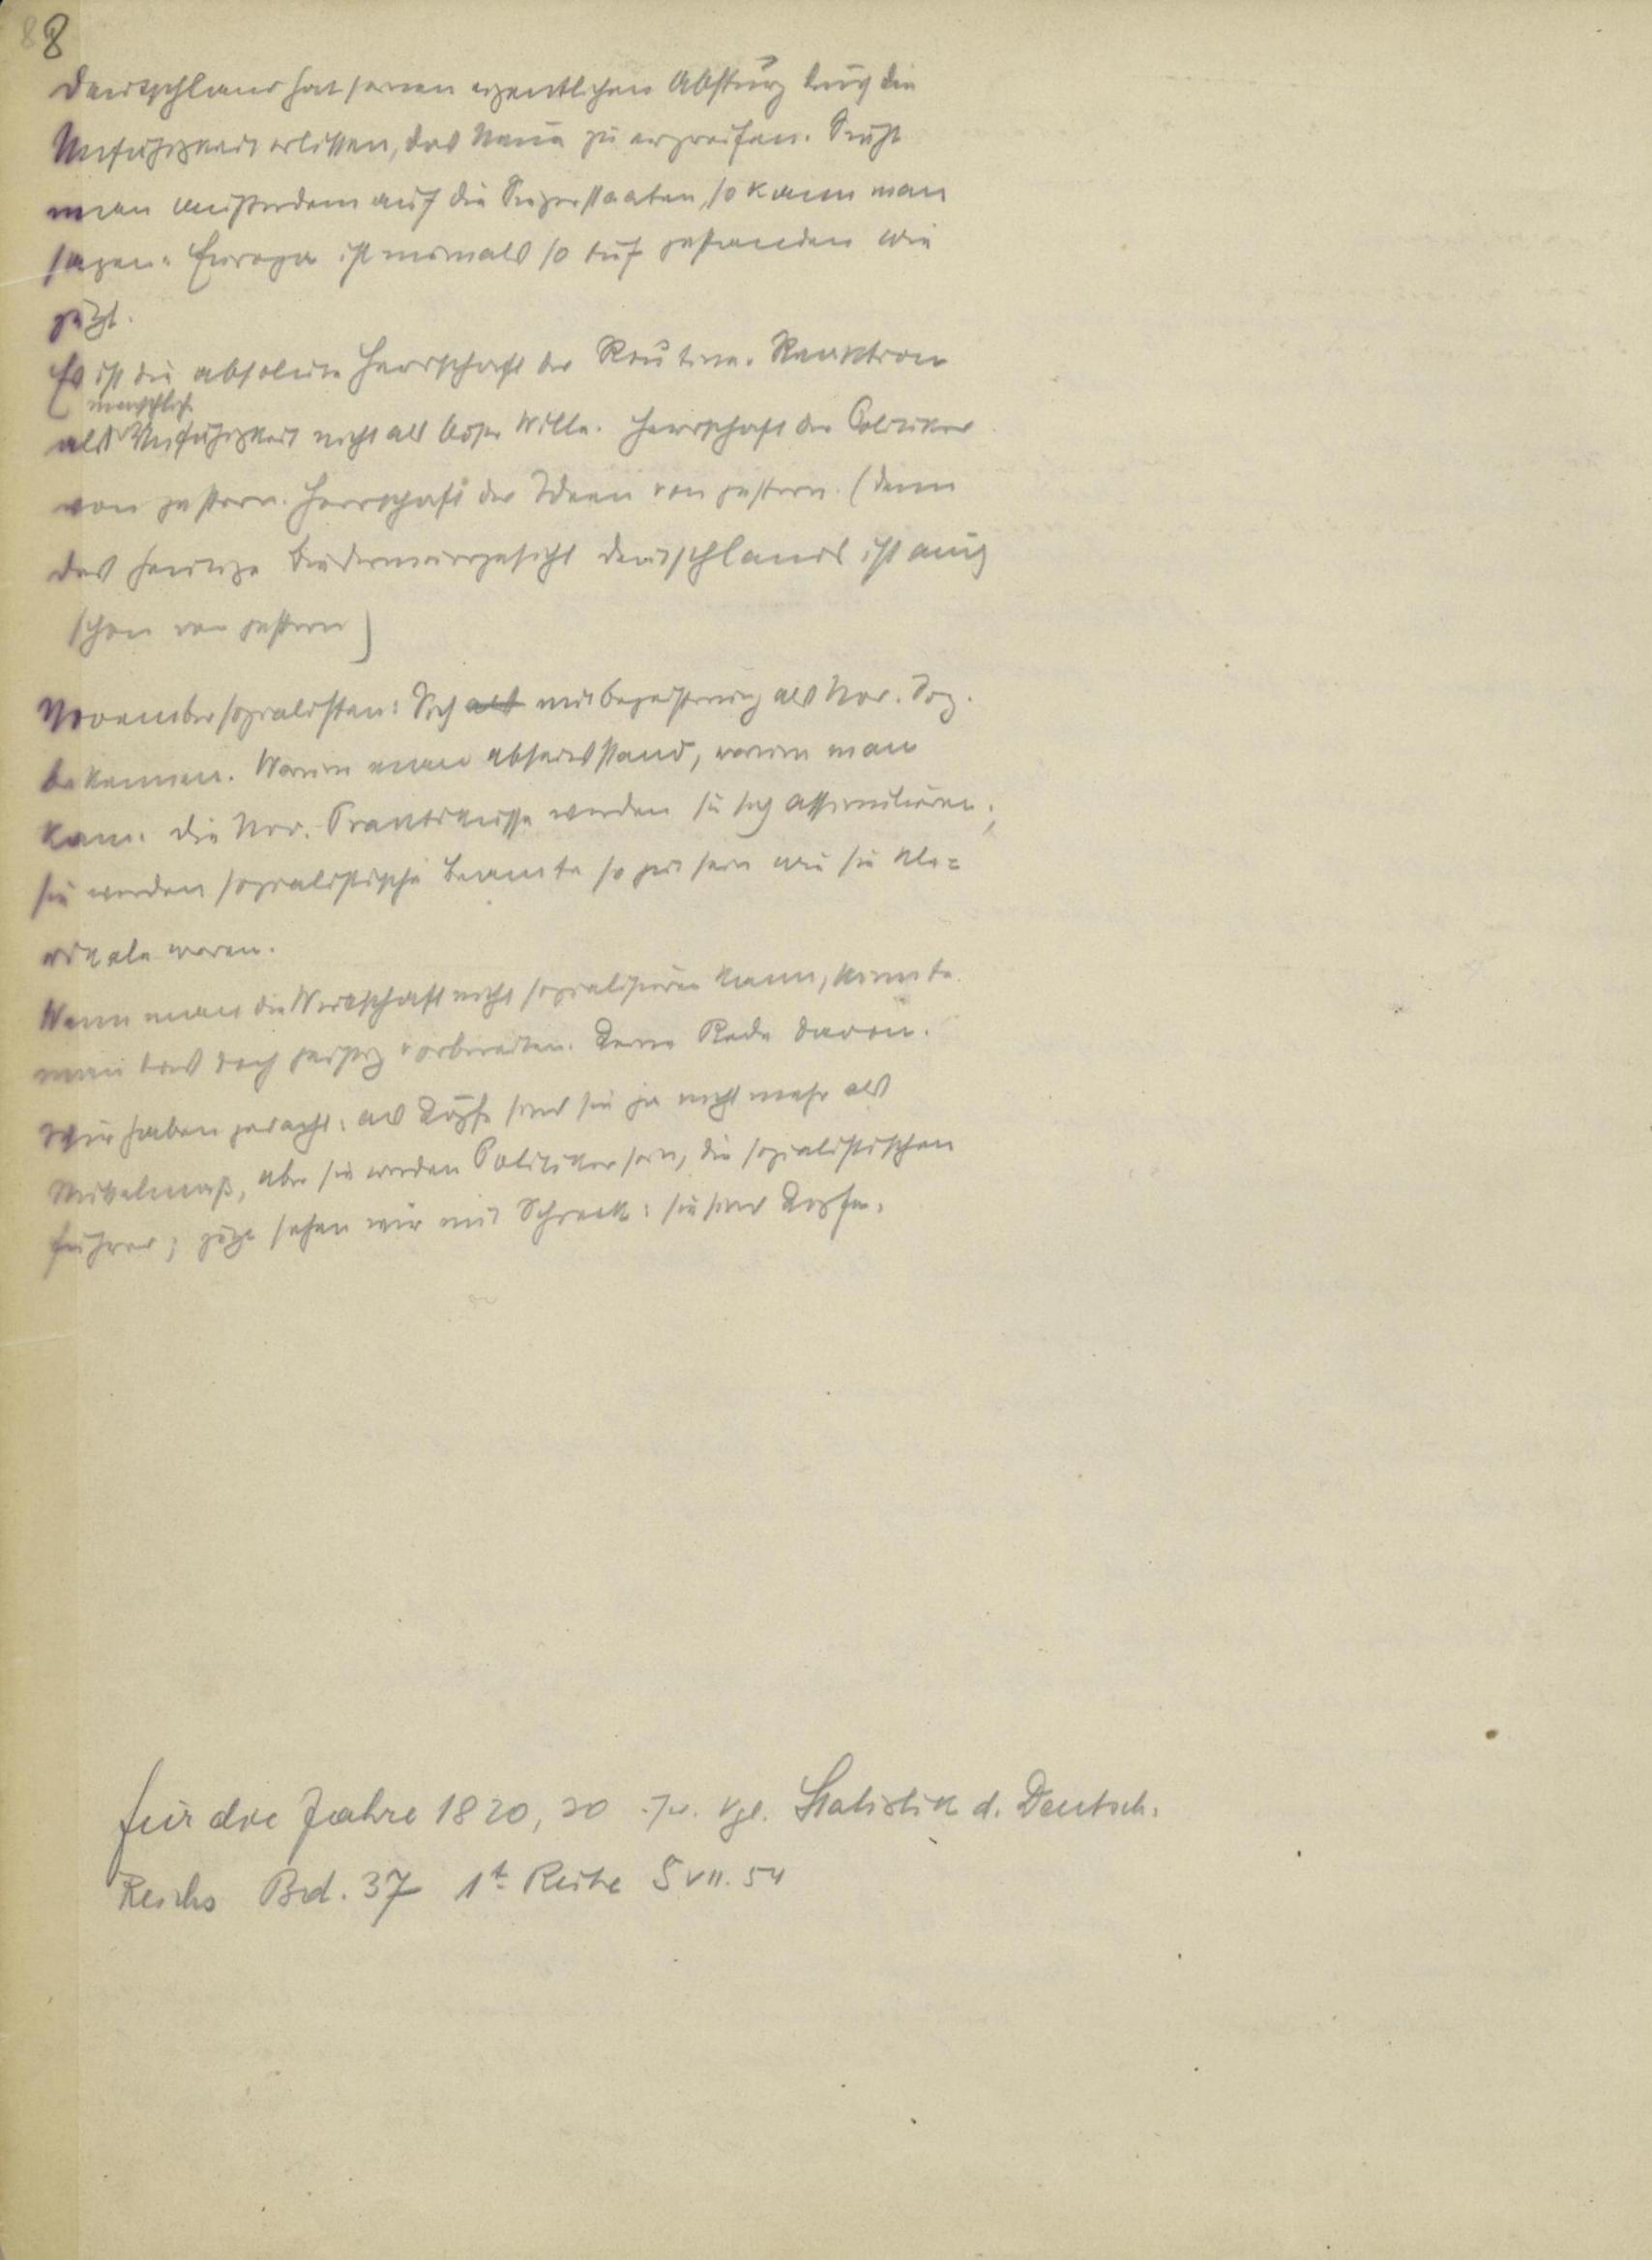 8 8
Deutschland hat seinen eigentlichen Absturz durch die
Unfähigkeit erlitten, das Neue zu ergreifen. Sieht
man außerdem auf die Siegerstaaten, so kann man
sagen: Europa ist niemals so tief gestanden wie
jetzt.
Es ist die absolute Herrschaft der Routine. Reaktion
menschliche
als Unfähigkeit nicht als böser Wille. Herrschaft der Politiker
von gestern. Herrschaft der Ideen von gestern. (Denn
das heutige Biedermeiergesicht Deutschlands ist auch
schon von gestern)
Novembersozialisten: Sich als mit Begeisterung als Nov. Soz.
bekennen. Warum man abseits stand, warum man
kam. Die Nov. Verhältnisse werden sie sich assimilieren;
sie werden sozialistische Beamte so gut sein wie sie kle=
rikale waren.
Wenn man die Wirtschaft nicht sozialisieren kann, könnte
man das doch geistig vorbereiten. Keine Rede davon.
Wir haben gedacht: als Köpfe sind sie ja nicht mehr als
Mittelmaß, aber sie werden Politiker sein, die sozialistischen
Führer; jetzt sehen wir mit Schreck: sie sind Köpfe.
für die Jahre 1820, 30 vgl. Statistik d. Deutsch.
Reichs Bd. 37 1t Reihe S VII. 54